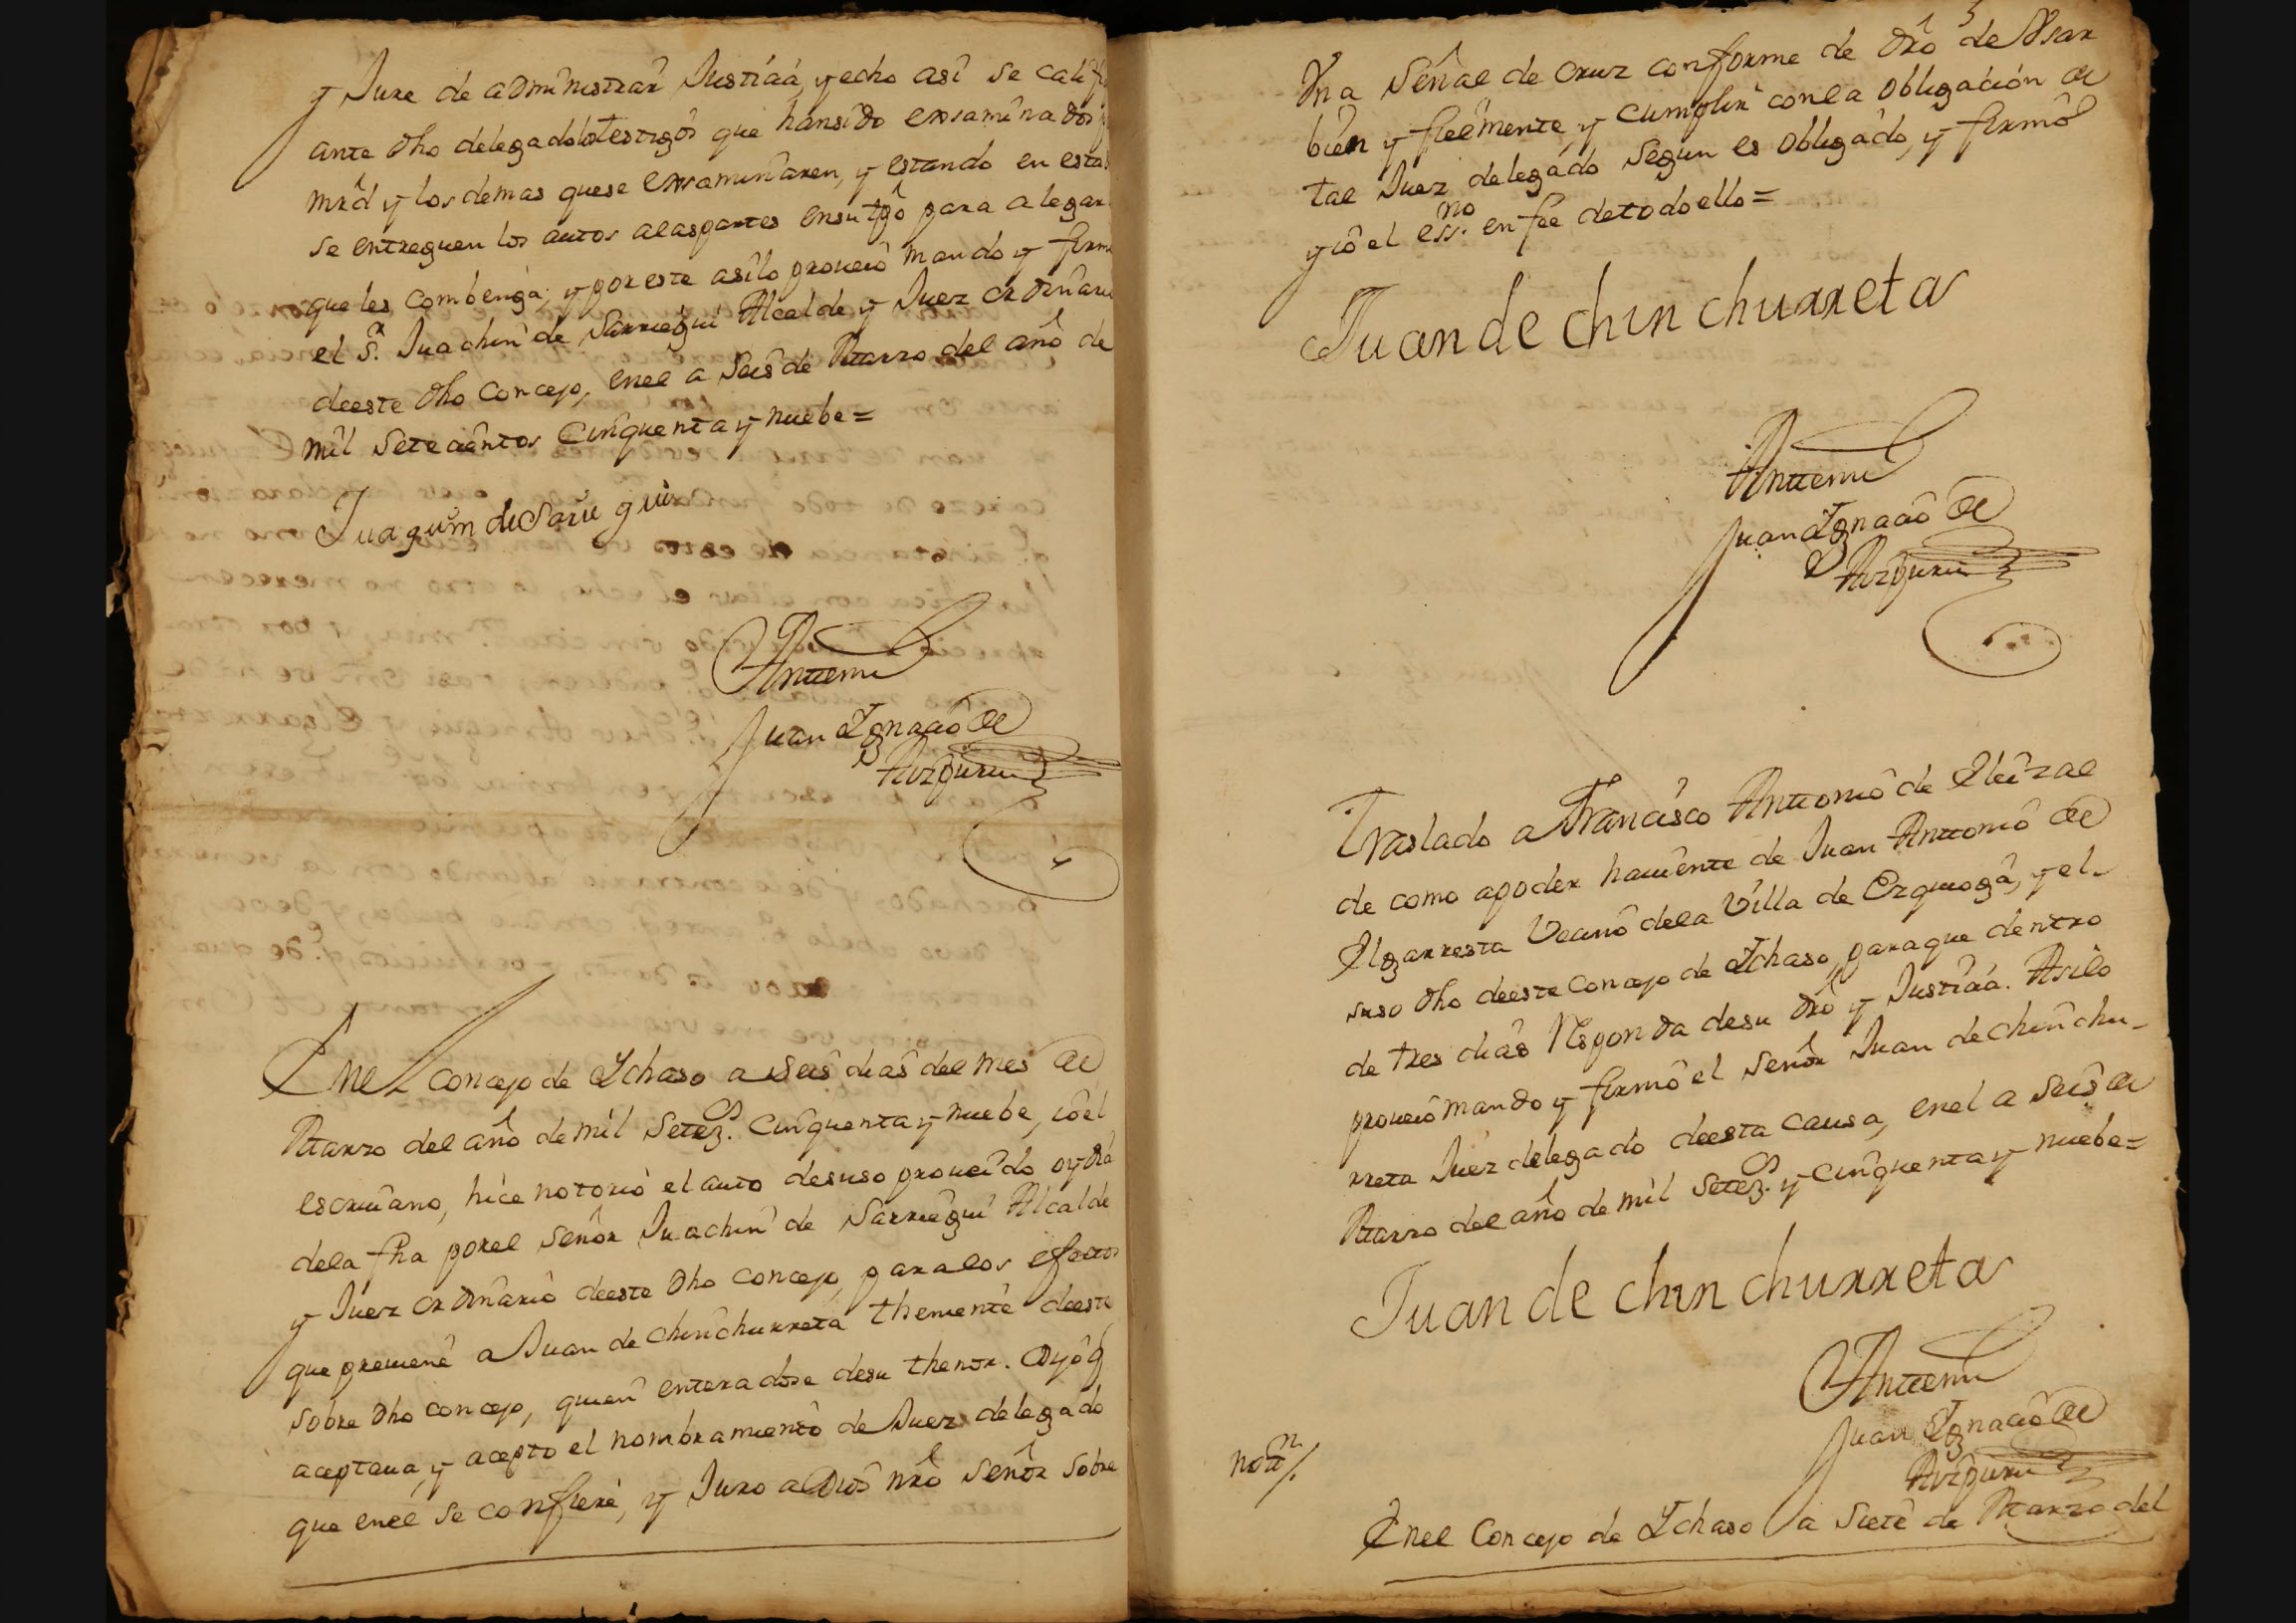 y Jure de administrar Justicia, y echo asi se califi
ante dho delegado los testigos que han sido exsaminados
mrd y los demas que se exsaminaren, y estando en esta
se entreguen los autos a las partes en su tpo para alegar
que les combenga, y por este asi lo proveio mando y firm
el Sr. Juachin de Sarriegui Alcalde y Juez ordinari
de este dho Concejo, en el a Seis de Marzo del año de
mil Setecientos Cinquenta y nuebe =
Juaquin de Sarie gui
Antemi
Juan Ygnacio de
Aizpuru
En el Concejo de Ychaso a seis dias del mes de
Marzo del año de mil Setez.os Cinquenta y nuebe, io el
escrivano, hice notorio el auto de suso proveido oy dia
de la fha por el señor Juachin de Sarriegui Alcalde
y Juez ordinario de este dho Concejo, para los efectos
que previene a Juan de Chinchurreta theniente de este
sobre dho concejo, quien enteradose de su thenor. Dijo q
aceptava, y acepto el nombramiento de Juez delegado
que en el se confiere, y Juro a Dios nro señor sobre
Una Señal de Cruz conforme de dro de Usar
bien y fielmente, y cumplir con la obligacion de
tal Juez delegado segun es obligado, y firmo
y io el ess.no en fee de todo ello =
Juan de chin churreta
Antemi
Juan Ygnacio de
Aizpuru
Traslado a Francisco Antonio de Eleizal
de como apoder haviente de Juan Antonio de
Elgarresta Vecino de la Villa de Ezquioga, y el
suso dho de este Concejo de Ychaso, para que dentro
de tres dias Responda de su dro y Justicia. Asi lo
proveio mando y firmo el señor Juan de Chinchu-
rreta Juez delegado de esta Causa, en el a seis de
Marzo del año de mil Setez.os y Cinquenta y nuebe =
Juan de chin churreta
Antemi
Juan Ygnacio de
Aizpuru
noti.n /.
En el Concejo de Ychaso a Siete de Marzo del